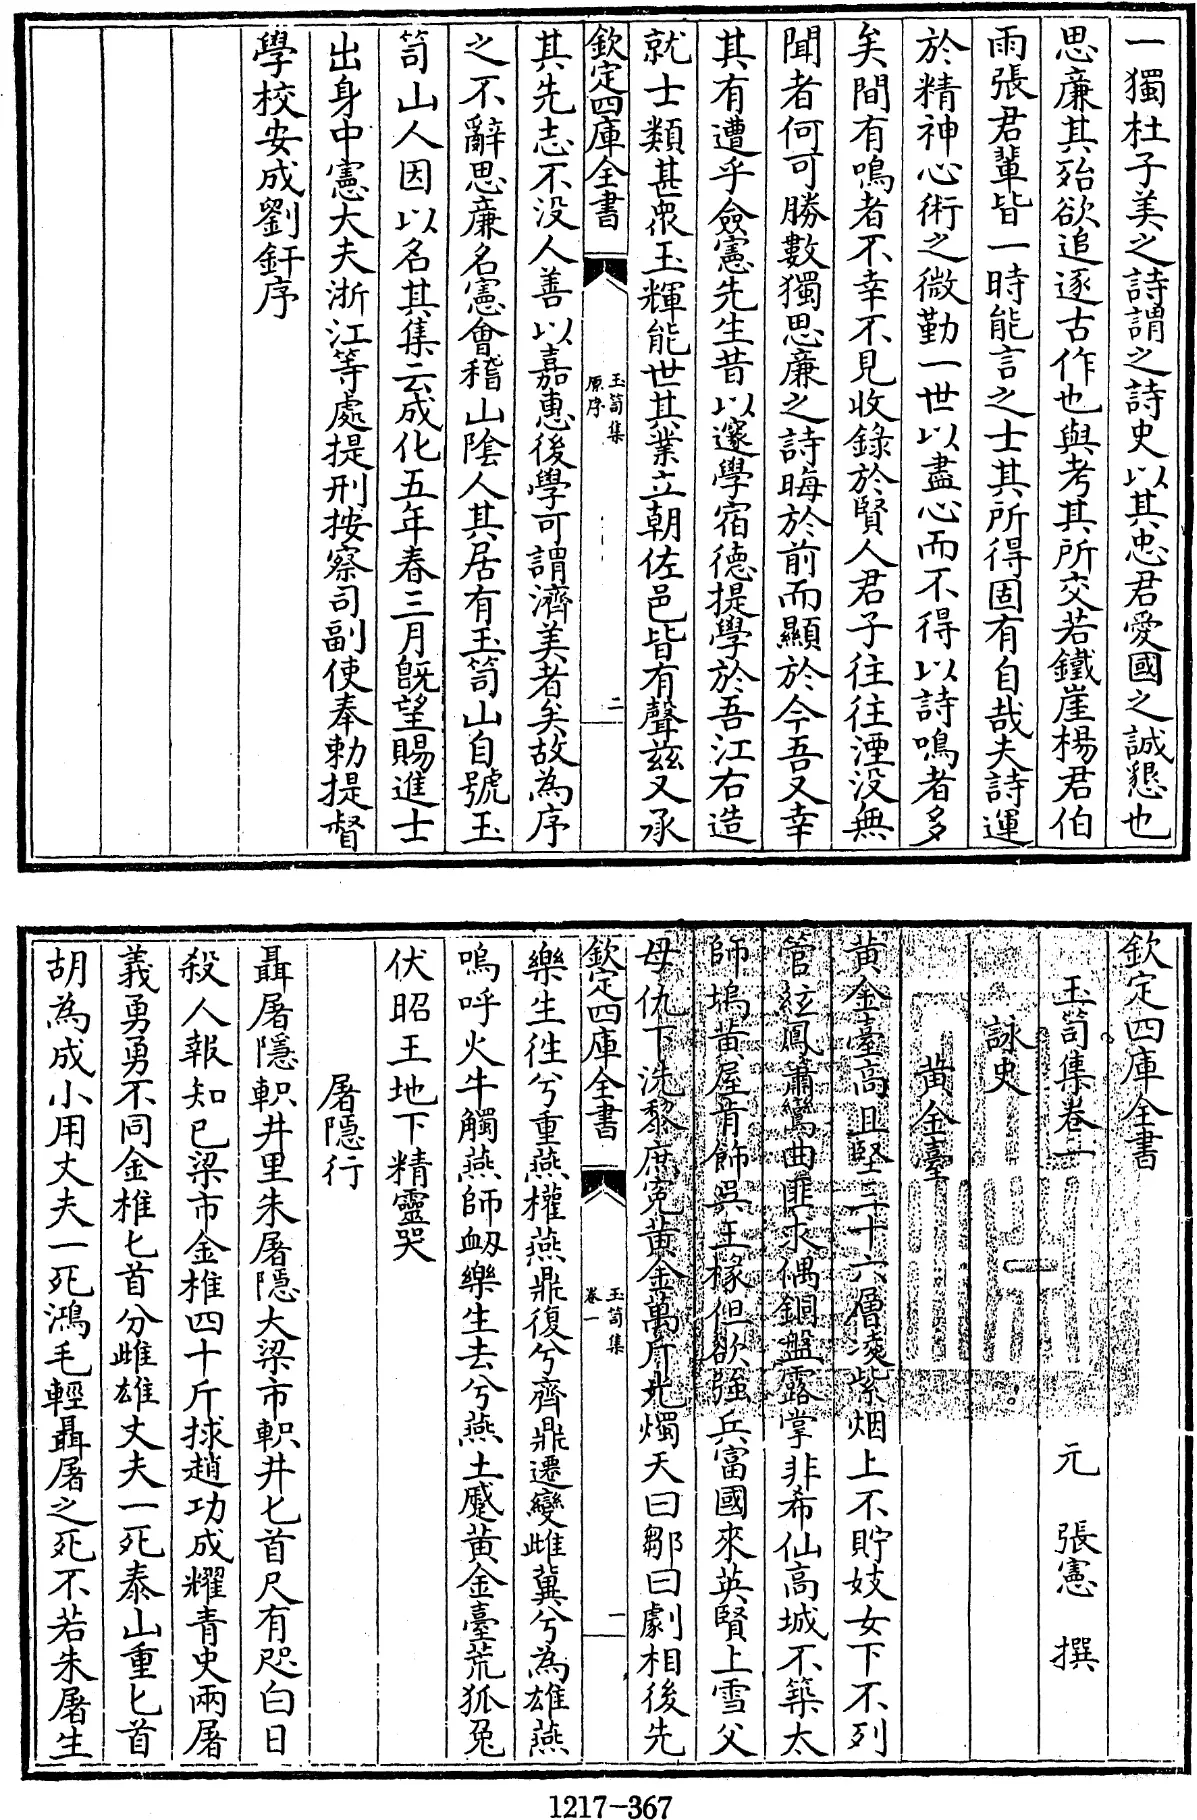 一獨杜子美之詩謂之詩史以其忠君愛國之誠懇也
思廉其殆欲追逐古作也與考其所交若鐵崖楊君伯
雨張君輩皆一時能言之士其所得固有自哉夫詩運
於精神心術之微勤一世以盡心而不得以詩鳴者多
矣間有鳴者不幸不見收錄於賢人君子往往湮没無
聞者何可勝數獨思廉之詩晦於前而顯於今吾又幸
其有遭乎僉憲先生昔以邃學宿德提學於吾江右造
就士類甚衆玉輝能世其業立朝佐邑皆有聲兹又承
欽定四庫全書
玉笥集
原序
二
其先志不没人善以嘉惠後學可謂濟美者矣故為序
之不辭思廉名憲會稽山陰人其居有玉笥山自號玉
笥山人因以名其集云成化五年春三月既望賜進士
出身中憲大夫浙江等處提刑按察司副使奉勅提督
學校安成劉釬序
欽定四庫全書
玉笥集卷一
元 張憲 撰
詠史
黄金臺
黄金臺高且堅三十六層凌紫烟上不貯妓女下不列
管絃鳳簫鸞曲匪求偶銅盤露掌非希仙高城不築太
師塢黄屋肯飾吳王椽但欲強兵富國來英賢上雪父
母仇下洗黎庶寃黄金萬斤光燭天曰鄒曰劇相後先
欽定四庫全書
玉笥集
卷一
一
樂生徃兮重燕權燕鼎復兮齊鼎遷變雌冀兮為雄燕
嗚呼火牛觸燕師衂樂生去兮燕土蹙黄金臺荒狐兔
伏昭王地下精靈哭
屠隱行
聶屠隱軹井里朱屠隱大梁市軹井匕首尺有咫白日
殺人報知已梁市金椎四十斤捄趙功成耀青史兩屠
義勇勇不同金椎匕首分雌雄丈夫一死泰山重匕首
胡為成小用丈夫一死鴻毛輕聶屠之死不若朱屠生
1217-367